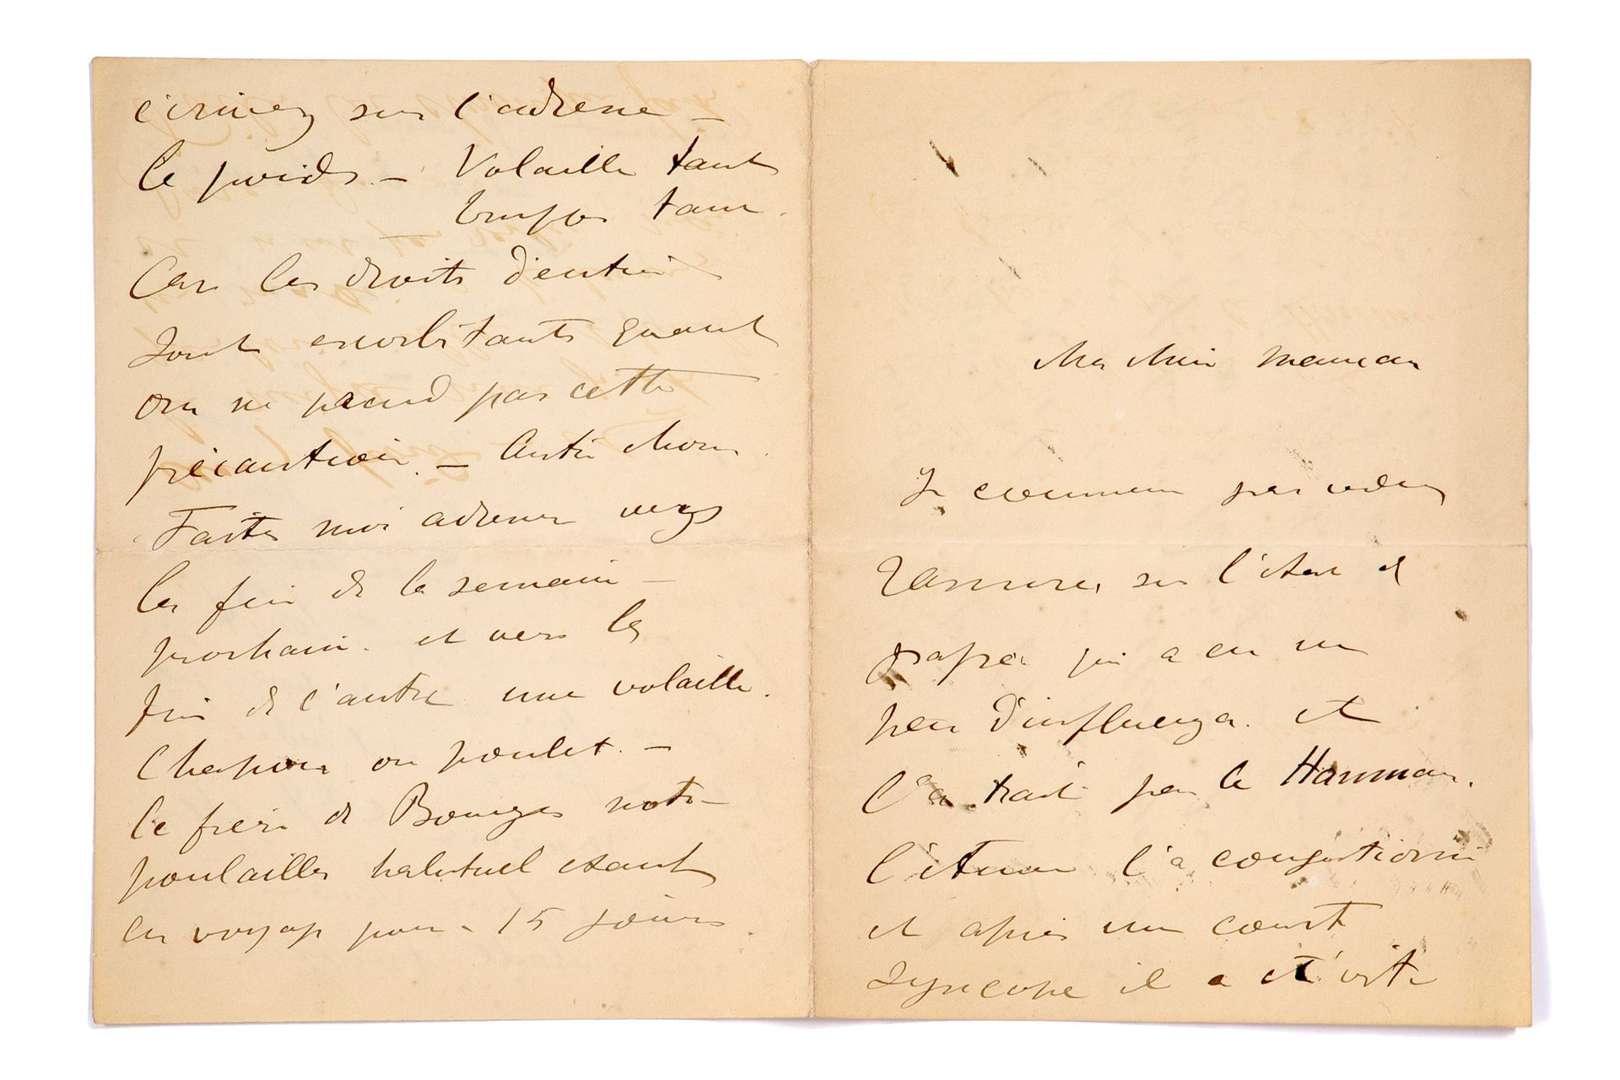 Ma chère maman
Je commence par vous
rassurer sur l'état de
papa qui a eu un
peu d'influenza. et
l'a traité par le Hammam.
l'étuve l'a congestionné
et après une courte
syncope il a été vite
écrivez sur l'adresse –
le poids. – Volaille tant
truffes tant.
Car les droits d'entrée
sont exorbitants quand
on ne prend pas cette
précaution. – Autre chose.
Faites moi adresser vers
la fin de la semaine –
prochaine. et vers la
fin de l'autre une volaille.
Chapon ou poulet. –
le frère de Bourges notre
poulailler habituel étant
en voyage pour 15 jours.